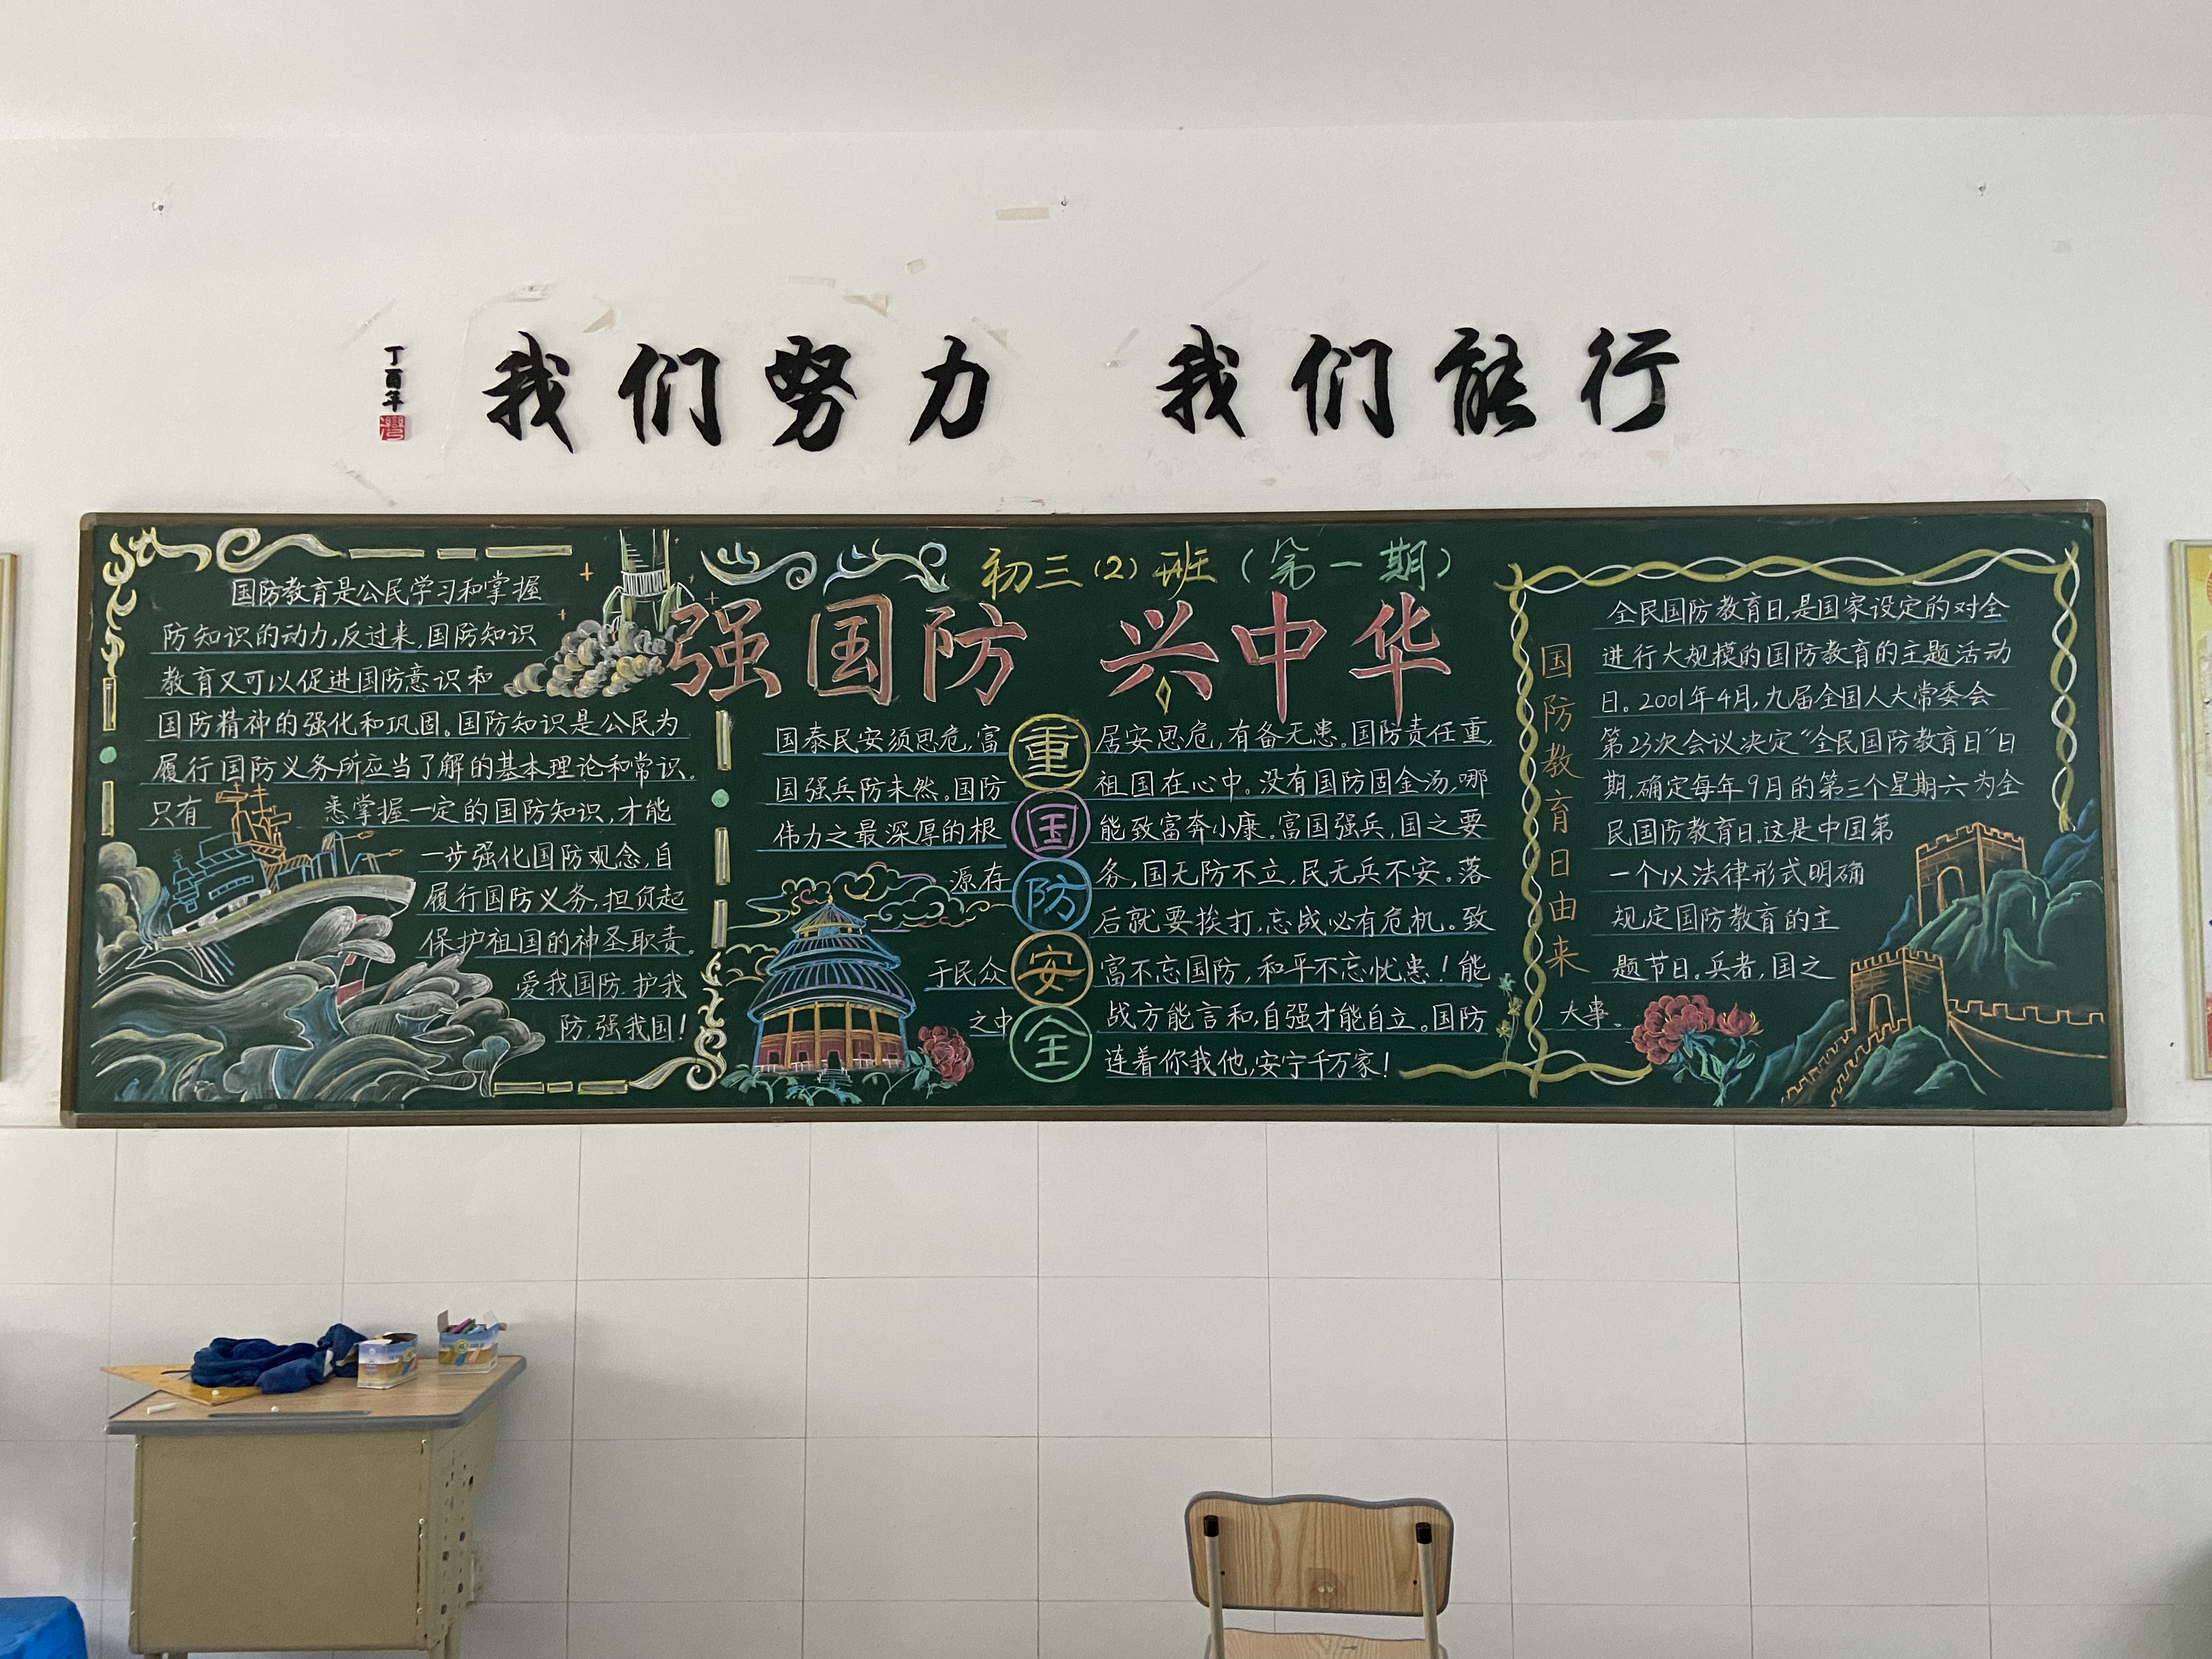 我们努力 我们能行
丁酉年
初三（2）班（第一期）
强国防 兴中华
国防教育是公民学习和掌握
防知识的动力,反过来,国防知识
教育又可以促进国防意识和
国防精神的强化和巩固。国防知识是公民为
履行国防义务所应当了解的基本理论和常识。
只有 悉掌握一定的国防知识,才能
一步强化国防观念,自
履行国防义务,担负起
保护祖国的神圣职责。
爱我国防.护我
防,强我国!
国泰民安须思危,富
国强兵防未然。国防
伟力之最深厚的根
源存
于民众
之中
重
国
防
安
全
居安思危,有备无患。国防责任重,
祖国在心中。没有国防固金汤,哪
能致富奔小康。富国强兵,国之要
务,国无防不立,民无兵不安。落
后就要挨打,忘战必有危机。致
富不忘国防,和平不忘忧患!能
战方能言和,自强才能自立。国防
连着你我他,安宁千万家!
国防教育日由来
全民国防教育日,是国家设定的对全
进行大规模的国防教育的主题活动
日。2001年4月,九届全国人大常委会
第23次会议决定“全民国防教育日”日
期,确定每年9月的第三个星期六为全
民国防教育日.这是中国第
一个以法律形式明确
规定国防教育的主
题节日。兵者,国之
大事。